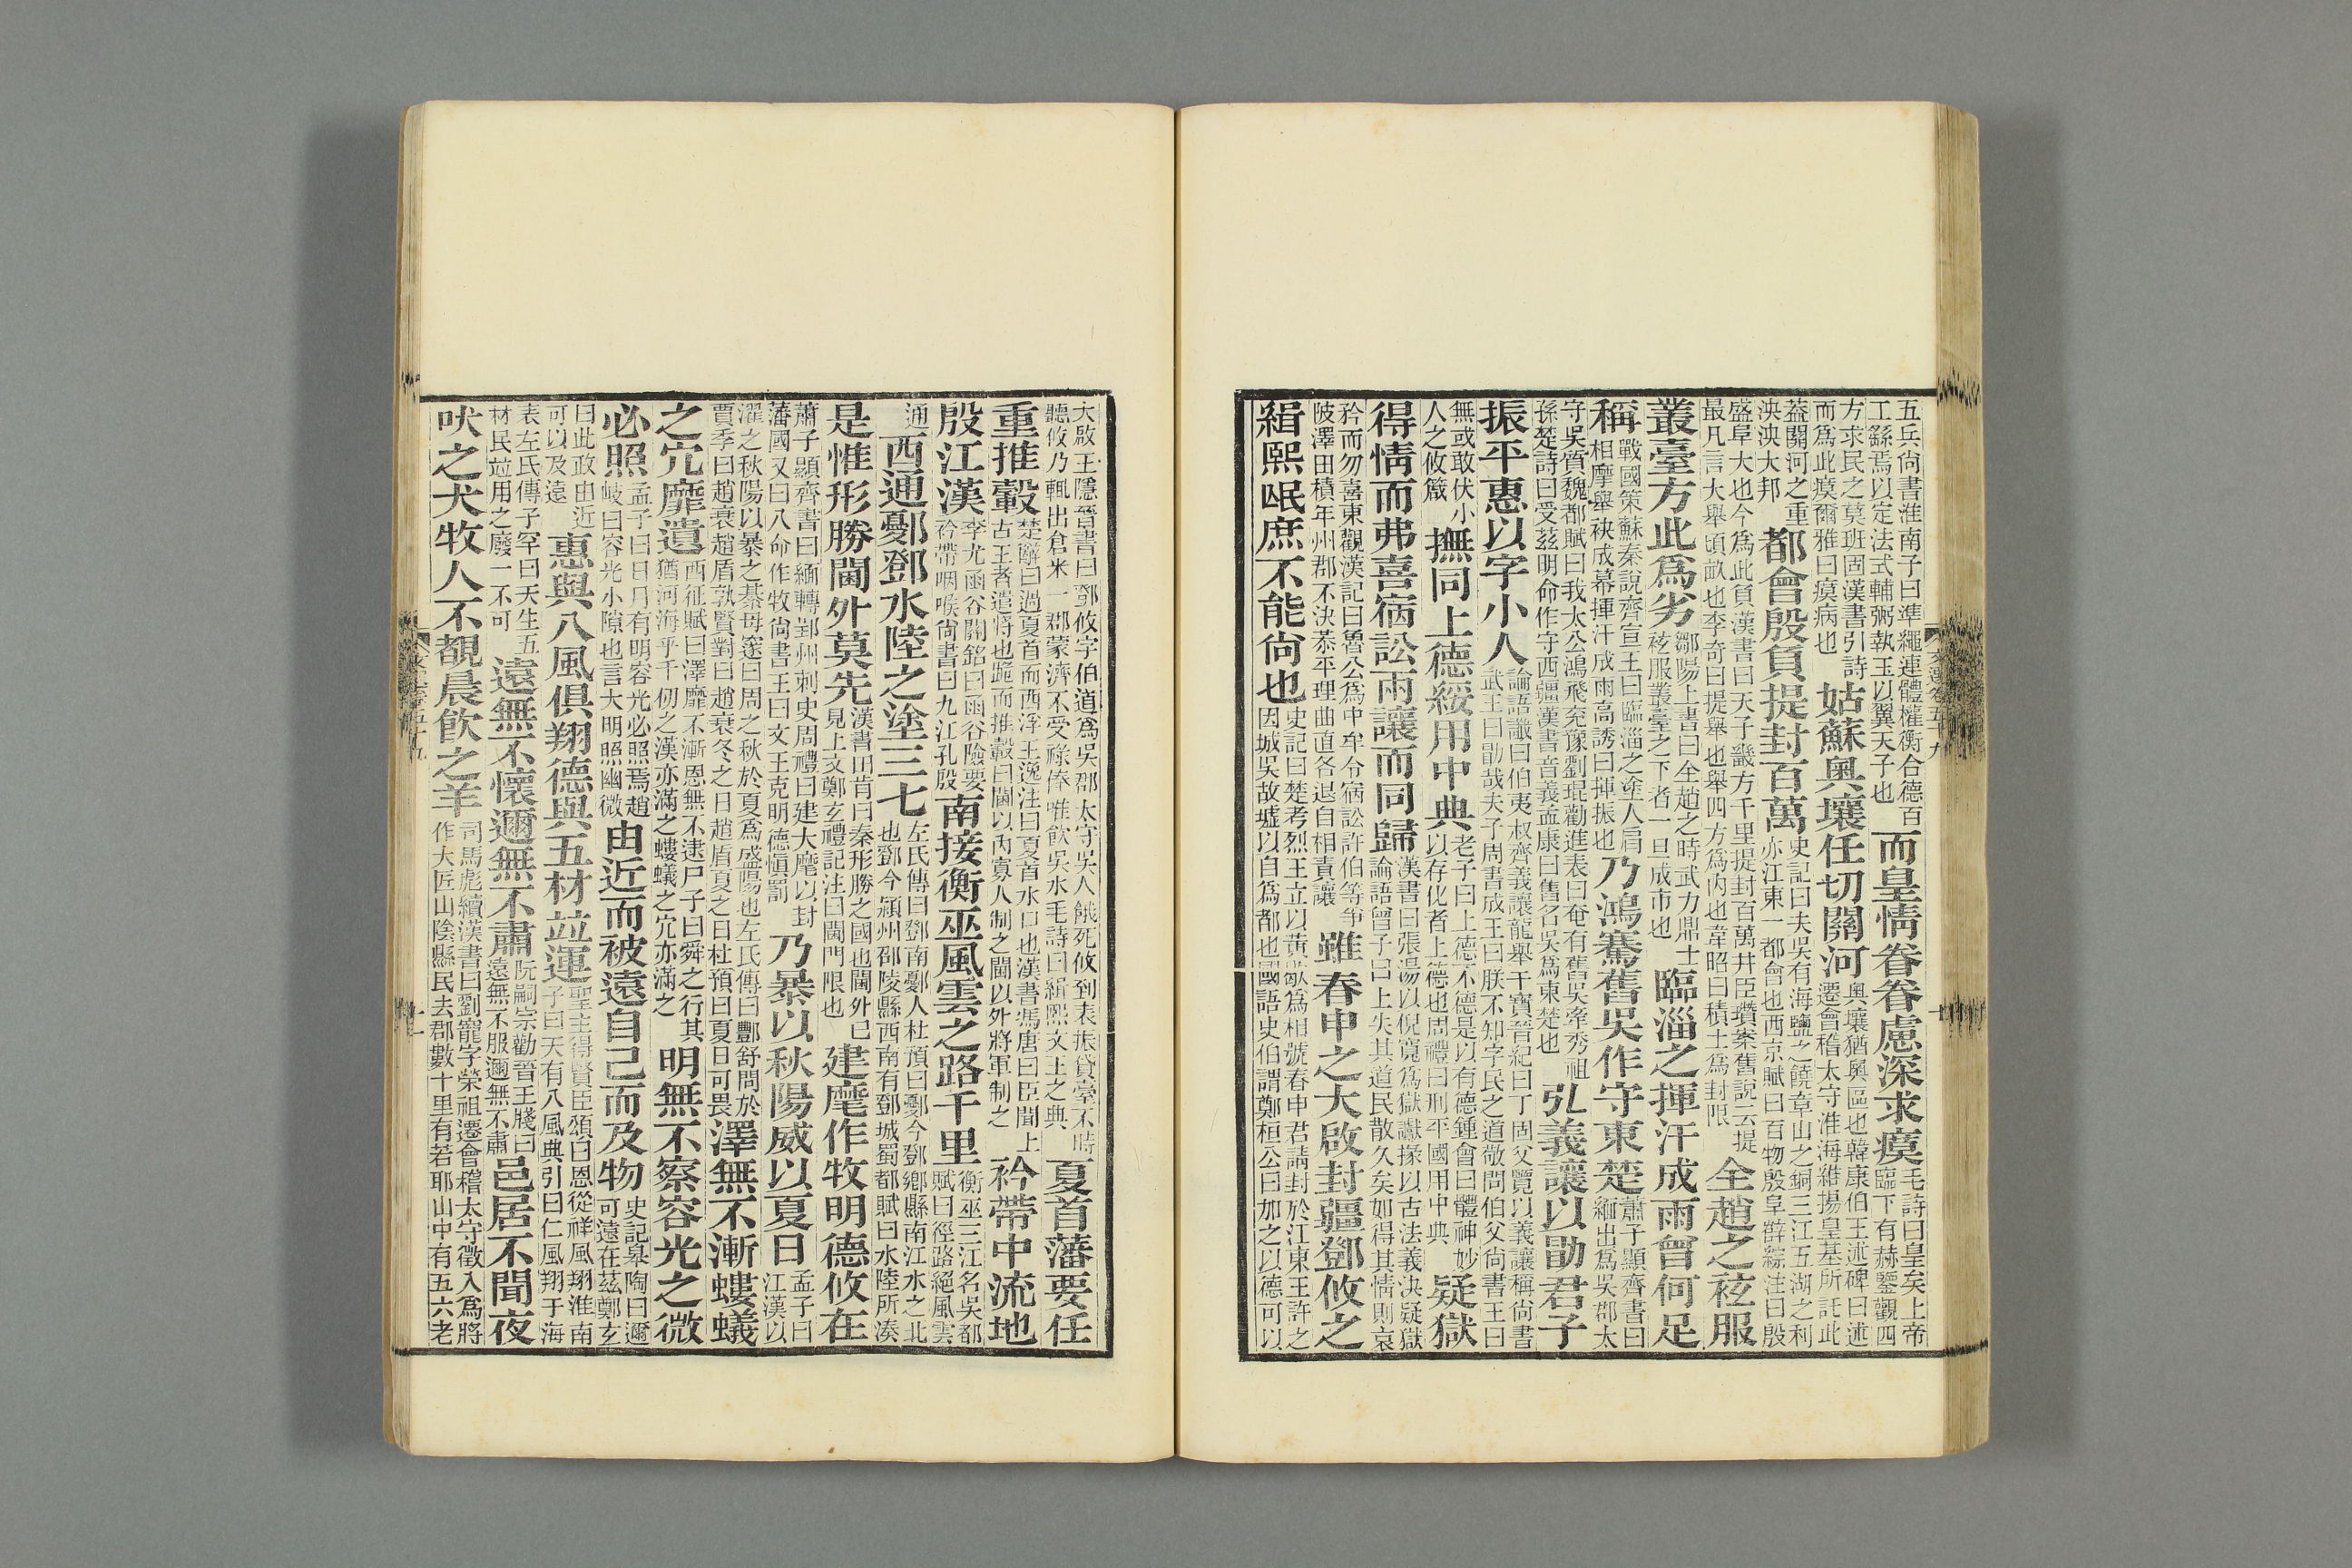 五兵尚書淮南子曰準繩連體權衡合德百工繇焉以定法式輔弼執玉以翼天子也而皇情眷眷慮深求瘼毛詩曰皇矣上帝臨下有赫鑒觀四
方求民之莫班固漢書引詩而爲此瘼爾雅曰瘼病也姑蘇奧壤任切關河奧壤猶奧區也韓康伯王述碑曰述遷會稽太守淮海維揚皇基所託此
蓋關河之重泱泱大邦都會殷負提封百萬史記曰夫吳有海鹽之饒章山之銅三江五湖之利亦江東一都會也西京賦曰百物殷阜薛綜注曰殷
盛阜大也今爲此負漢書曰天子畿方千里提封百萬井臣瓚案舊說云提最凡言大舉頃畝也李奇曰提舉也舉四方爲內也韋昭曰積土爲封限全趙之袨服
叢臺方此爲劣鄒陽上書曰全趙之時武力鼎士袨服叢臺之下者一旦成市也臨淄之揮汗成雨曾何足
稱戰國策蘇秦說齊宣王曰臨淄之塗人肩相摩舉袂成幕揮汗成雨高誘曰揮振也乃鴻騫舊吳作守東楚蕭子顯齊書曰緬出爲吳郡太
守吳質魏都賦曰我太公鴻飛兗豫劉琨勸進表曰奄有舊吳牽秀祖孫楚詩曰受茲明命作守西疆漢書音義孟康曰舊名吳爲東楚也弘義讓以勖君子
振平惠以字小人論語讖曰伯夷叔齊義讓龍舉干寶晉紀曰丁固父覽以義讓稱尚書武王曰勖哉夫子周書成王曰朕不知字民之道敬問伯父尚書王曰
無或敢伏小人之攸箴撫同上德綏用中典老子曰上德不德是以有德鍾會曰體神妙以存化者上德也周禮曰刑平國用中典疑獄
得情而弗喜宿訟兩讓而同歸漢書曰張湯以倪寬爲獄讞掾以古法義決疑獄論語曾子曰上失其道民散久矣如得其情則哀
矜而勿喜東觀漢記曰魯公爲中牟令宿訟許伯等爭陂澤田積年州郡不決恭平理曲直各退自相責讓雖春申之大啟封疆鄧攸之
緝熙甿庶不能尚也史記曰楚考烈王立以黃歇爲相號春申君請封於江東王許之因城吳故墟以自爲都也國語史伯謂鄭桓公曰加之以德可以
大啟王隱晉書曰鄧攸字伯道爲吳郡太守吳人餓死攸到表振貸臺不時聽攸乃輒出倉米一郡蒙濟不受祿俸唯飲吳水毛詩曰緝熙文王之典夏首藩要任
重推轂楚辭曰過夏首而西浮王逸注曰夏首水口也漢書馮唐曰臣聞上古王者遣將也跪而推轂曰閫以內寡人制之閫以外將軍制之衿帶中流地
殷江漢李尤函谷關銘曰函谷險要衿帶咽喉尚書曰九江孔殷南接衡巫風雲之路千里衡巫三江名吳都賦曰徑路絕風雲
通西通鄾鄧水陸之塗三七左氏傳曰鄧南鄾人杜預曰鄾今鄧鄉縣南江水之北也鄧今潁州邵陵縣西南有鄧城蜀都賦曰水陸所湊
是惟形勝閫外莫先漢書田肯曰秦形勝之國也閫外已見上文鄭玄禮記注曰閫門限也建麾作牧明德攸在
蕭子顯齊書曰緬轉郢州刺史周禮曰建大麾以封藩國又曰八命作牧尚書王曰文王克明德愼罰乃暴以秋陽威以夏日孟子曰江漢以
濯之秋陽以暴之綦毋邃曰周之秋於夏爲盛陽也左氏傳曰酆舒問於賈季曰趙衰趙盾孰賢對曰趙衰冬之日趙盾夏之日杜預曰夏日可畏澤無不漸螻蟻
之穴靡遺西征賦曰澤靡不漸恩無不逮尸子曰舜之行其猶河海乎千仞之漢亦滿之螻蟻之穴亦滿之明無不察容光之微
必照孟子曰日月有明容光必照焉趙岐曰容光小隙也言大明照幽微由近而被遠自己而及物史記皋陶曰邇可遠在茲鄭玄
曰此政由近可以及遠惠與八風俱翔德與五材竝運聖主得賢臣頌曰恩從祥風翔淮南子曰天有八風典引曰仁風翔于海
表左氏傳子罕曰天生五材民竝用之廢一不可遠無不懷邇無不肅阮嗣宗勸晉王牋曰遠無不服邇無不肅邑居不聞夜
吠之犬牧人不覩晨飲之羊司馬彪續漢書曰劉寵字榮祖遷會稽太守徵入爲將作大匠山陰縣民去郡數十里有若耶山中有五六老